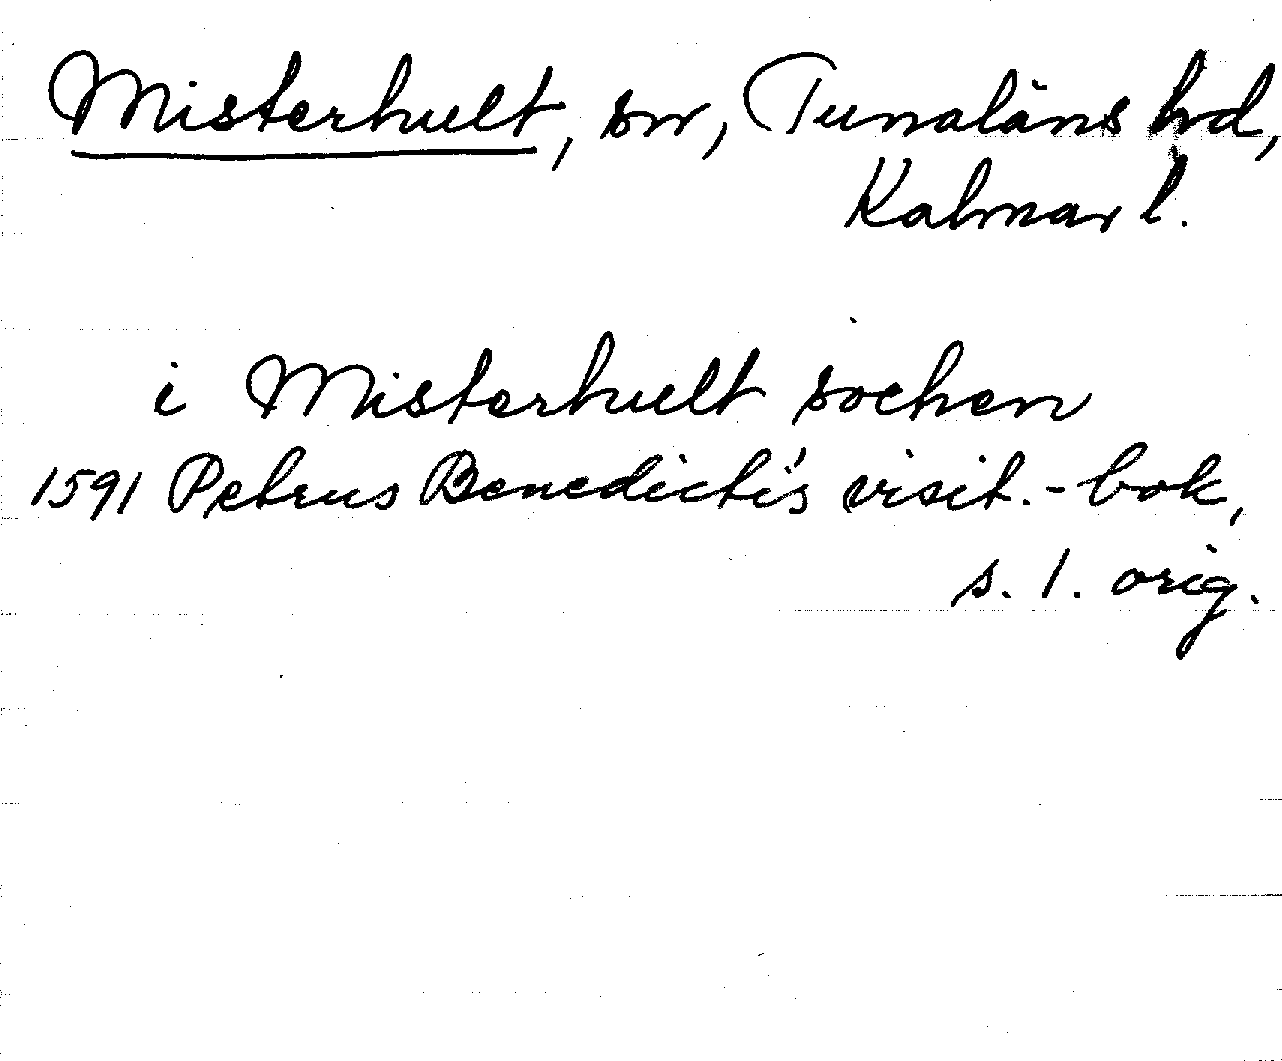 Misterhult, sn, Tunaläns hd,
Kalmar l.
i Misterhult sochen
1591 Petrus Benedicti's visit.-bok,
s. 1. orig.